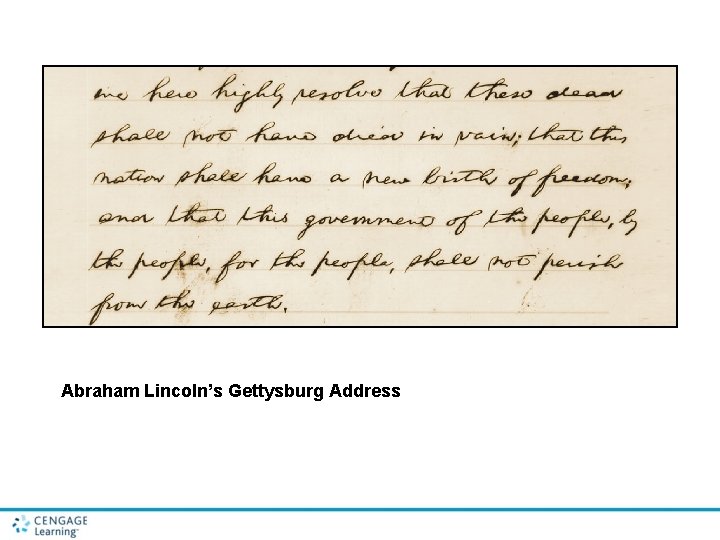 we here highly resolve that these dead
shall not have died in vain; that this
nation shall have a new birth of freedom;
and that this government of the people, by
the people, for the people, shall not perish
from the earth.
Abraham Lincoln’s Gettysburg Address
CENGAGE
Learning™